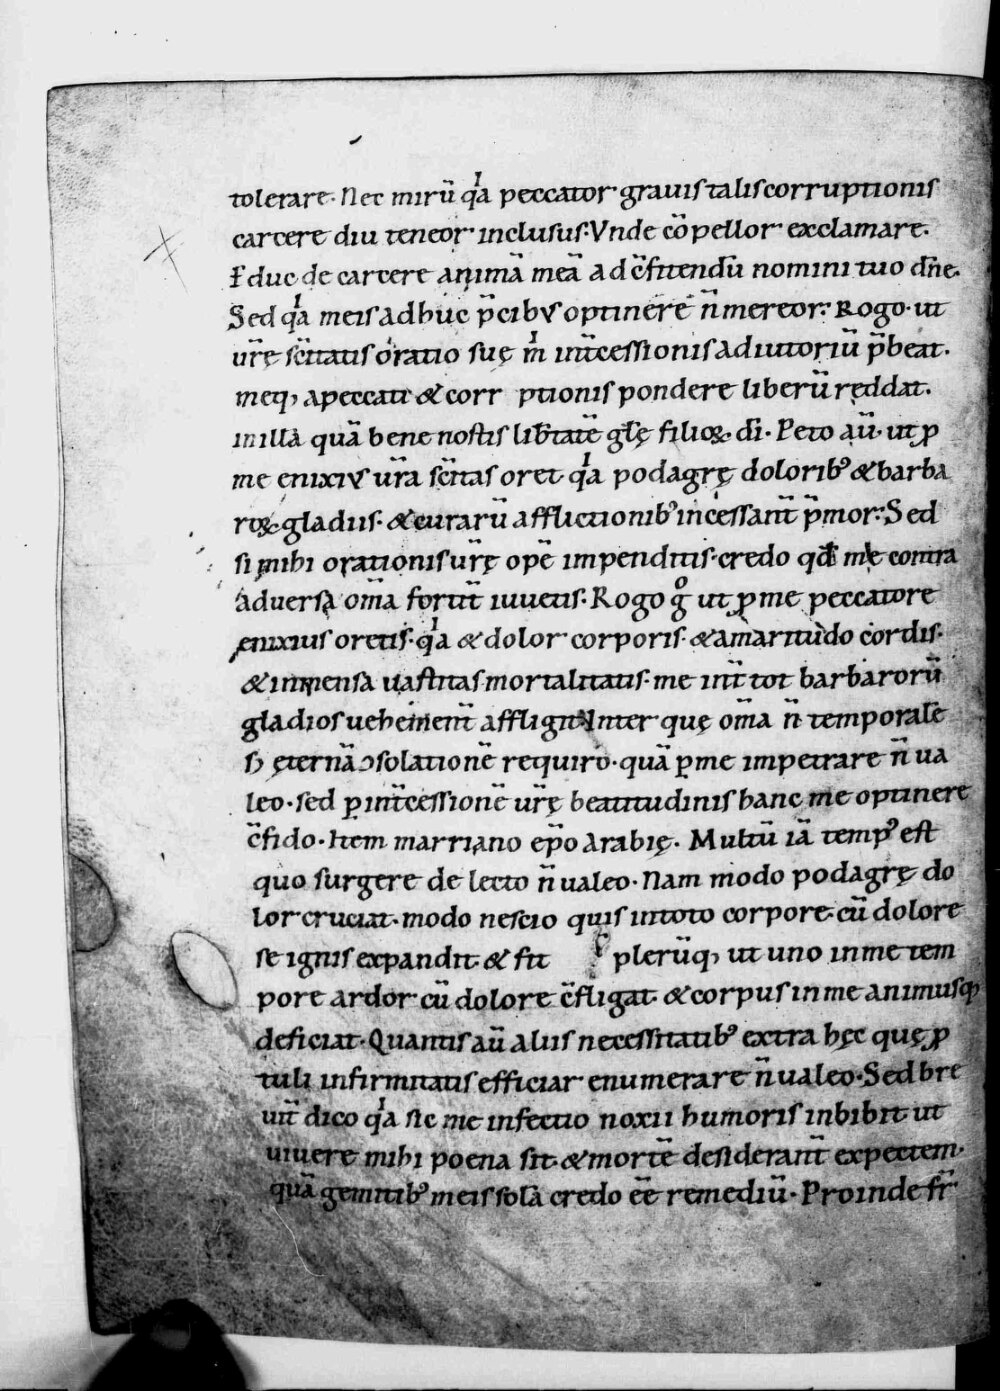 tolerare. Nec mirū qͥa peccator grauis talis corruptionis
carcere diu teneor inclusus. Vnde cōpellor exclamare.
Educ de carcere animā meā ad c̄fitendū nomini tuo dn̄e.
Sed qͥa meis adhuc p̄cibus optinere n̄ mereor. Rogo ut
ur̄ę sc̄itatis oratio suę mͥ int̄cessionis adiutoriū p̄beat.
meq; a peccati & corr ptionis pondere liberū reddat.
in illā quā bene nostis lib̄tatē gl̄ę filioꝝ dī. Peto aū. ut ꝓ
me enixius ur̄a sc̄itas oret qͥa podagrę dolorib᾿ & barba
roꝝ gladiis. & curarū afflictionib᾿ incessant̄ p̄mor. Sed
si mihi orationis ur̄ę opē impenditis. credo qđ me contra
aduersa om̄a fortit̄ iuuetis. Rogo gͦ ut ꝓ me peccatore
enixius oretis. qͥa & dolor corporis. & amaritudo cordis.
& inmensa uastitas mortalitatis. me int̄ tot barbarorū
gladios uehement̄ affligit. Inter quę om̄a n̄ temporalē
sꝫ ęternā ↄsolationē requiro. quā ꝑ me impetrare n̄ ua
leo. sed ꝑ int̄cessionē ur̄ę beatitudinis hanc me optinere
c̄fido. Item marriano ep̄o arabię. Multū iā temp᾿ est
quo surgere de lecto n̄ ualeo. Nam modo podagrę do
lor cruciat. modo nescio quis in toto corpore. cū dolore
se ignis expandit & fit plerūq; ut uno in me tem
pore ardor cū dolore c̄fligat. & corpus in me animusq;
deficiat. Quantis aū aliis necessitatib᾿ extra hęc quę ꝓ
tuli infirmitatis efficiar enumerare n̄ ualeo. Sed bre
uit̄ dico qͥa sic me infectio noxii humoris inbibit ut
uiuere mihi poena sit. & mortē desiderant̄ expectem.
quā gemitib᾿ meis solā credo eē remediū. Proinde fr̄